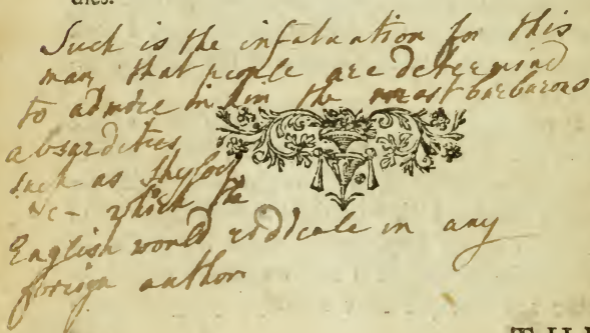 dies.
Such is the infatuation for this
man that people are determind
to admire in him the most barbarous
absurdities
such as Shylock
&c - which the
English would riddicule in any
foreign author